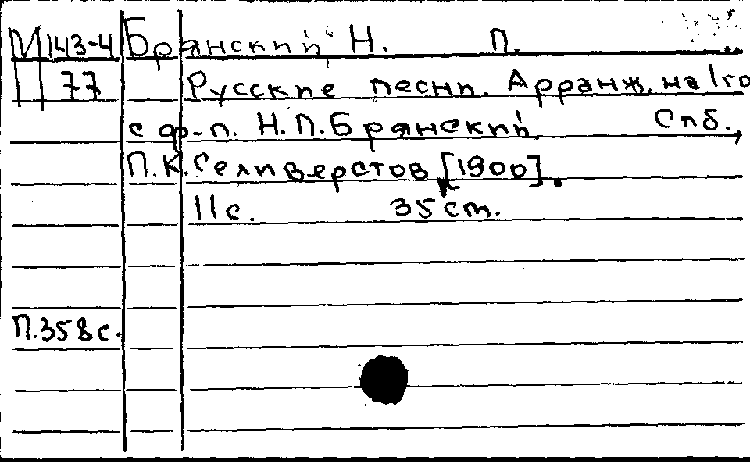 М 143-4 Брянский Н. П.
П 77 Русские песни. Арранж. на 1 го
с ф.-п. Н.П.Брянский. Спб.,
П.К.Селиверстов [1900].
11с. 35 cm.
П.358с.